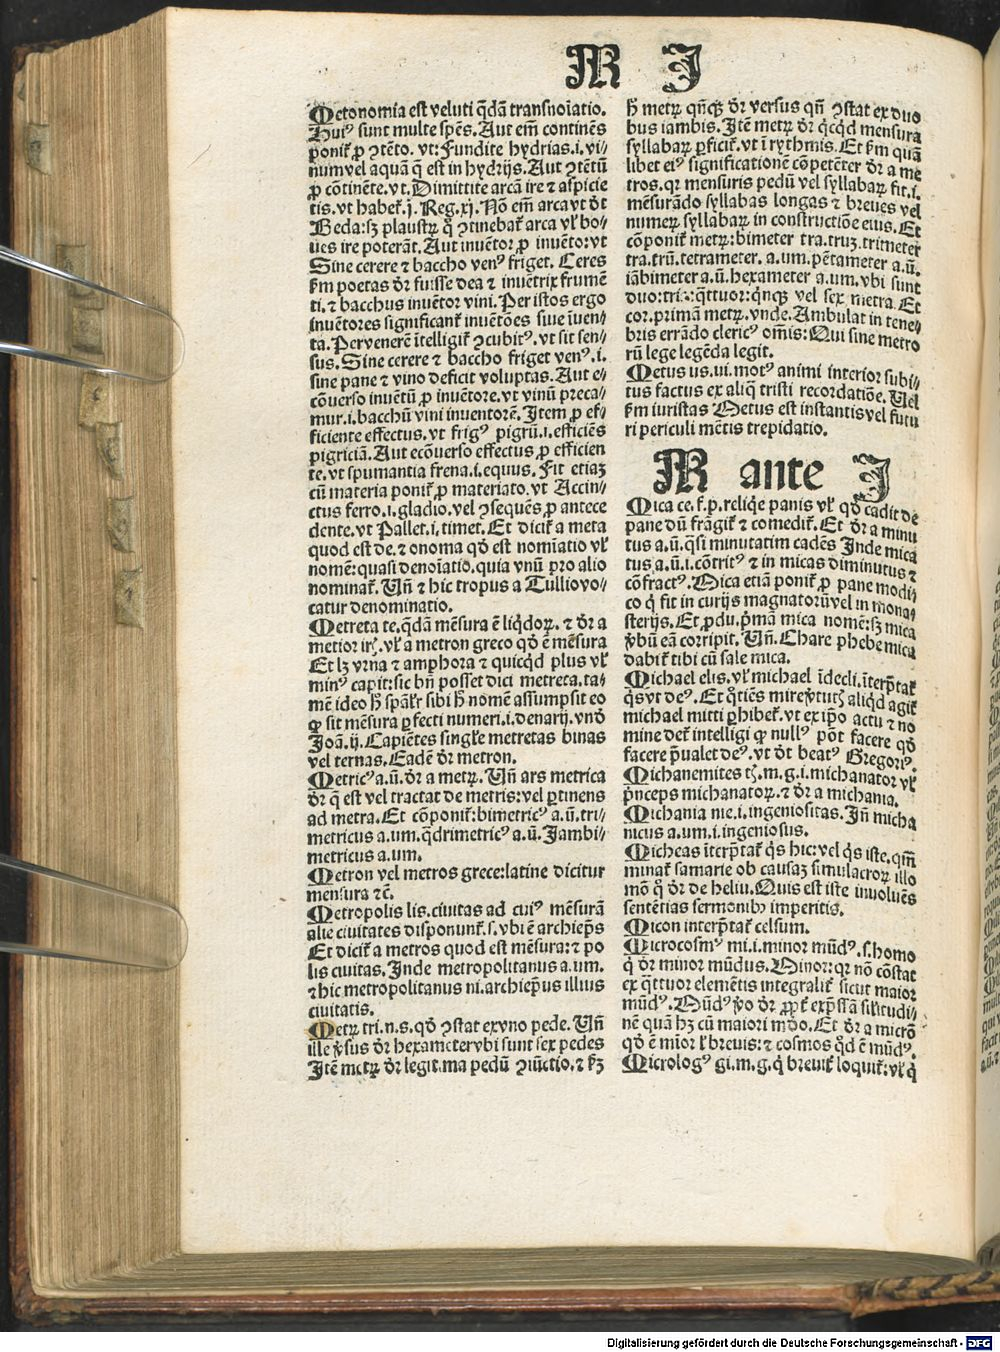 M I
Metonomia est veluti q̄dā transnoīatio.
Huiꝰ sunt multe spēs. Aut em̄ continēs
ponit᷑ ꝓ ꝯtēto. vt: Fundite hydrias.i. vi⸗
num vel aquā q̄ est in hydrijs. Aut ꝯtētū
ꝓ cōtinēte. vt. Dimittite arcā ire ⁊ aspicie
tis. vt habet᷑.j. Reg.xj. Nō em̄ arca vt dt̄
Beda: sꝫ plaustꝝ q̇ ꝯtinebat᷑ arca vl᷑ bo⸗
ues ire poterāt. Aut inuētor ꝓ inuēto: vt
Sine cerere ⁊ baccho venꝰ friget. Ceres
ẜm poetas dr̄ fuisse dea ⁊ inuētrix frumē
ti. ⁊ bacchus inuētor vini. Per istos ergo
inuētores significant᷑ inuētōes siue iuen⸗
ta. Per venerē ītelligit᷑ ꝯcubitꝰ. vt sit sen⸗
sus. Sine cerere ⁊ baccho friget venꝰ.i.
sine pane ⁊ vino deficit voluptas. Aut e⸗
cōuerso inuētū ꝓ inuētore. vt vinū preca⸗
mur.i. bacchū vini inuentorē. Item ꝓ ef⸗
ficiente effectus. vt frigꝰ pigrū.i. efficiēs
pigriciā. Aut ecōuerso effectus ꝓ efficien
te. vt spumantia frena.i. equus. Fit etiaꝫ
cū materia ponit᷑ ꝓ materiato. vt Accin⸗
ctus ferro.i. gladio. vel ꝯsequēs ꝓ antece
dente. vt Pallet.i. timet. Et dicit᷑ a meta
quod est de. ⁊ onoma qd̓ est nomīatio vl᷑
nomē: quasi denoīatio. quia vnū pro alio
nominat᷑. Vn̄ ⁊ hic tropus a Tullio vo⸗
catur denominatio.
Metreta te. q̄dā mēsura ē liq̇doꝝ. ⁊ dr̄ a
metior iris. vl᷑ a metron greco qd̓ ē mēsura
Et lꝫ vrna ⁊ amphora ⁊ quicq̇d plus vl᷑
minꝰ capit: sic bn̄ posset dici metreta. ta⸗
mē ideo h̄ spāl᷑r sibi h̄ nomē assumpsit eo
ꝙ sit mēsura ꝑfecti numeri.i. denarij. vnd̓
Joā.ij. Capiētes singl᷑e metretas binas
vel ternas. Eadē dr̄ metron.
Metricꝰ a.ū. dr̄ a metꝝ. Vn̄ ars metrica
dr̄ q̄ est vel tractat de metris: vel ꝑtinens
ad metra. Et cōponit᷑: bimetricꝰ a.ū. tri⸗
metricus a.um. q̄drimetricꝰ a.ū. Jambi⸗
metricus a.um.
Metron vel metros grece: latine dicitur
mensura ⁊c̄.
Metropolis lis. ciuitas ad cuiꝰ mēsurā
alie ciuitates disponunt᷑.s. vbi ē archieꝑs
Et dicit᷑ a metros quod est mēsura: ⁊ po
lis ciuitas. Inde metropolitanus a.um.
⁊ hic metropolitanus ni. archiep̄us illius
ciuitatis.
Metꝝ tri.n.s. qd̓ ꝯstat ex vno pede. Vn̄
ille v̓sus dr̄ hexameter vbi sunt sex pedes
Itē metꝝ dr̄ legit.ma pedū ꝯiūctio. ⁊ ẜꝫ
h̄ metꝝ qn̄qꝫ dr̄ versus qn̄ ꝯstat ex duo
bus iambis. Itē metꝝ dr̄ q̇cq̇d mensura
syllabaꝝ ꝑficit᷑. vt ī rythmis. Et ẜm quā
libet eiꝰ significationē cōpetēter dr̄ a me
tros. qr mensuris pedū vel syllabaꝝ fit.i.
mēsurādo syllabas longas ⁊ breues vel
numeꝝ syllabaꝝ in constructiōe eius. Et
cōponit᷑ metꝝ: bimeter tra.truꝫ. trimeter
tra.trū. tetrameter. a.um. pētameter a.ū.
iābimeter a.ū. hexameter a.um. vbi sunt
duo: tria: q̄ttuor: q̇nqꝫ vel sex metra. Et
cor. primā metꝝ. vnde. Ambulat in tene⸗
bris errādo clericꝰ om̄is: Qui sine metro
rū lege legēda legit.
Metus us.ui. motꝰ animi interior subi⸗
tus factus ex aliq̄ tristi recordatiōe. Vel
ẜm iuristas Metus est instantis vel futu
ri periculi mētis trepidatio.
M ante I
Mica ce.f.p. reliq̇e panis vl᷑ qd̓ cadit de
pane dū frāgit᷑ ⁊ comedit᷑. Et dr̄ a minu
tus a.ū. q̄si minutatim cadēs Inde mica
tus a.ū.i. cōtritꝰ ⁊ in micas diminutus ⁊
cōfractꝰ. Mica etiā ponit᷑ ꝓ pane modi⸗
co q̇ fit in curijs magnatorū vel in monas
sterijs. Et ꝓdu. p̄mā mica nomē: sꝫ mica
v̓bū eā corripit. Vn̄. Chare phebe mica
dabit᷑ tibi cū sale mica.
Michael elis. vl᷑ michael īdecli. īterp̄tat᷑
q̇s vt deꝰ. Et q̇tiēs mire v̓tutꝭ aliq̇d agit᷑
michael mitti ꝑhibet᷑. vt ex ip̄o actu ⁊ no
mine det᷑ intelligi ꝙ nullꝰ pōt facere qd̓
facere p̄ualet deꝰ. vt dt̄ beatꝰ Gregoriꝰ.
Michanemites tꝭ.m.g.i. michanator vl᷑
p̓nceps michanatoꝝ. ⁊ dr̄ a michania.
Michania nie.i. ingeniositas. In̄ micha
nicus a.um.i. ingeniosus.
Micheas īterp̄tat᷑ q̇s hic: vel q̇s iste. qm̄
minat᷑ samarie ob causaꝫ simulacroꝝ illo
mō q̇ dr̄ de heliu. Quis est iste inuoluēs
sentētias sermonibꝰ imperitis.
Micon interp̄tat᷑ celsum.
Microcosmꝰ mi.i. minor mūdꝰ.s. homo
q̇ dr̄ minor mūdus. Minor: qr nō cōstat
ex q̄ttuor elemētis integralit᷑ sicut maior
mūdꝰ. Mūdꝰ v̓o dr̄ ꝓpt᷑ exp̄ssā silitudi⸗
nē quā hꝫ cū maiori mūdo. Et dr̄ a micrō
qd̓ ē mīor l᷑ breuis: ⁊ cosmos qd̓ ē mūdꝰ.
Micrologꝰ gi.m.g. q̇ breuit᷑ loquit᷑: vl᷑ q̇
Digitalisierung gefördert durch die Deutsche Forschungsgemeinschaft - DFG